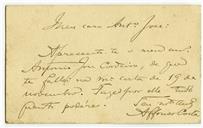 Meu caro Antº José:
Apresento-te o meu am.
Antonio José Cordeiro, de que
te fallei na mª carta de 19 de
novembro. Faze por elle tudo
quanto poderes.
Teu
Affonso Costa